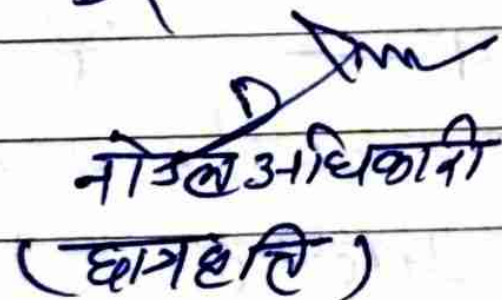 नोडल अधिकारी
(छात्रवृत्ति)